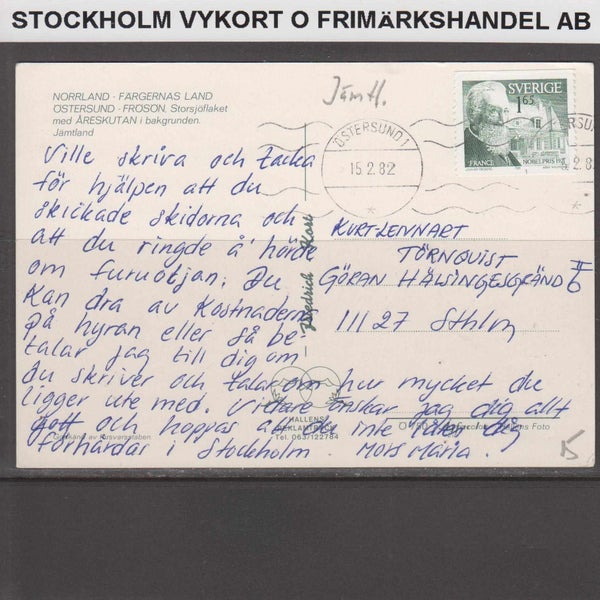 STOCKHOLM VYKORT O FRIMÄRKSHANDEL AB
NORRLAND - FÄRGERNAS LAND
ÖSTERSUND - FRÖSÖN. Storsjöflaket
med ÅRESKUTAN i bakgrunden.
Jämtland
Jämtl.
ÖSTERSUND 1
15.2.82
SVERIGE
1.65
FRANCE
NOBELPRIS
Ville skriva och tacka
för hjälpen att du
skickade skidorna och
att du ringde å hörde
om furuoljan. Du
kan dra av kostnaderna
på hyran eller så be-
talar jag till dig om
du skriver och talar om hur mycket du
ligger ute med. Vidare önskar jag dig allt
gott och hoppas att du inte låter dig
förhärdas i Stockholm. Mors Maria.
KURT-LENNART
TÖRNQUIST
GÖRAN HÄLSINGESGRÄND 6 II
111 27 Sthlm
HALLENS
REKLAMTRYCK
Tel. 063/122784
Godkänd av försvarsstaben
Hallens Foto
15